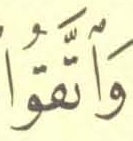 وَٱتَّقَوُا۟